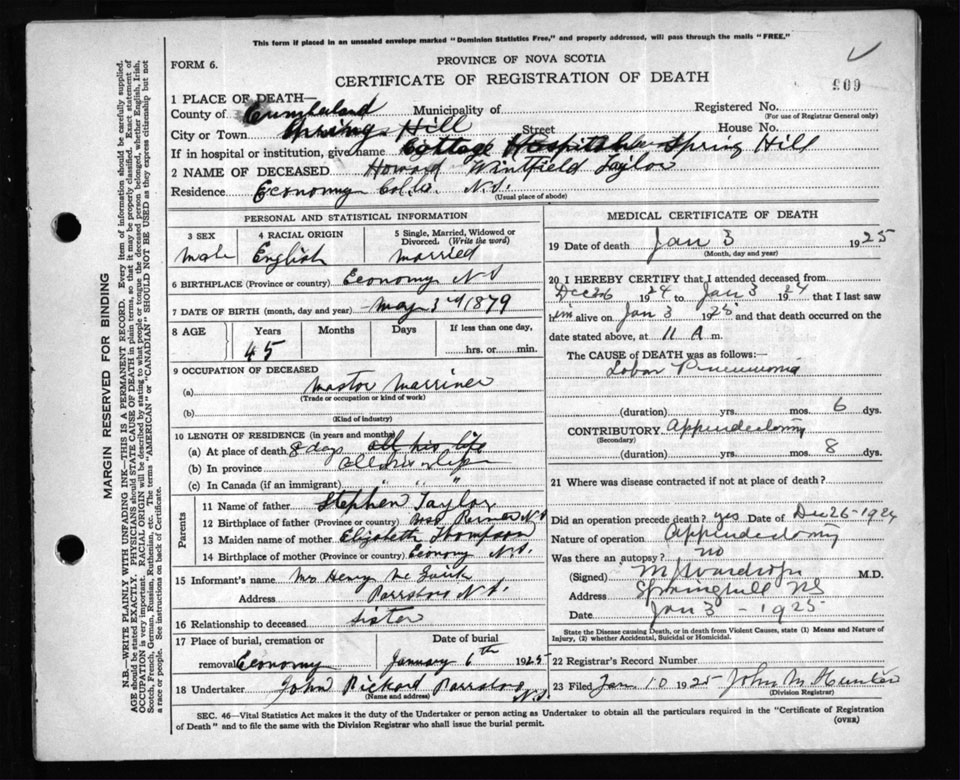 This form if placed in an unsealed envelope marked "Dominion Statistics Free," and properly addressed, will pass through the mails "FREE."
FORM 6.
PROVINCE OF NOVA SCOTIA
CERTIFICATE OF REGISTRATION OF DEATH
909
1 PLACE OF DEATH—
County of Cumberland Municipality of Registered No.
(For use of Registrar General only)
City or Town Spring Hill Street House No.
If in hospital or institution, give name Cottage Hospital Spring Hill
2 NAME OF DECEASED Howard Wintfield Taylor
Residence Economy Colch. N.S.
(Usual place of abode)
PERSONAL AND STATISTICAL INFORMATION
3 SEX 4 RACIAL ORIGIN 5 Single, Married, Widowed or Divorced. (Write the word)
Male English Married
6 BIRTHPLACE (Province or Country) Economy N S
7 DATE OF BIRTH (month, day and year) May 3rd 1879
8 AGE Years Months Days If less than one day,
45 hrs. or min.
9 OCCUPATION OF DECEASED
(a) Mastor Marriner
(Trade or occupation or kind of work)
(b)
(Kind of industry)
10 LENGTH OF RESIDENCE (in years and months)
(a) At place of death 8 days all his life
(b) In province all his life
(c) In Canada (if an immigrant) " " "
Parents
11 Name of father Stephen Taylor
12 Birthplace of father (Province or country) N.S
13 Maiden name of mother Elizabeth Thompson
14 Birthplace of mother (Province or Country) Economy N.S.
15 Informant's name Mrs Henry
Address Parrsboro N.S.
16 Relationship to deceased sister
17 Place of burial, cremation or removal Economy Date of burial January 6th 1925
18 Undertaker John Rickard Parrsboro N.S
(Name and address)
MEDICAL CERTIFICATE OF DEATH
19 Date of death Jan 3 1925
(Month, day and year)
20 I HEREBY CERTIFY that I attended deceased from
Dec 26 1924 to Jan 3 1924 that I last saw
him alive on Jan 3 1925 and that death occurred on the
date stated above, at 11 A m.
The CAUSE OF DEATH was as follows:—
Lobar Pneumonia
(duration) yrs. mos. 6 dys.
CONTRIBUTORY Appendectomy
(Secondary)
(duration) yrs. mos. 8 dys.
21 Where was disease contracted if not at place of death?
Did an operation precede death? yes Date of Dec 26-1924
Nature of operation Appendectomy
Was there an autopsy? no
(Signed) M J Wardrope M.D.
Address Springhill NS
Date Jan 3 - 1925
State the Disease causing Death, or in death from Violent Causes, state (1) Means and Nature of
Injury, (2) whether Accidental, Suicidal or Homicidal.
22 Registrar's Record Number
23 Filed Jan 10 1925 John M Hunter
(Division Registrar)
SEC. 46—Vital Statistics Act makes it the duty of the Undertaker or person acting as Undertaker to obtain all the particulars required in the "Certificate of Registration
of Death" and to file the same with the Division Registrar who shall issue the burial permit.
(OVER)
MARGIN RESERVED FOR BINDING
N.B.—WRITE PLAINLY WITH UNFADING INK—THIS IS A PERMANENT RECORD. Every item of information should be carefully supplied.
AGE should be stated EXACTLY. PHYSICIANS should STATE CAUSE OF DEATH in plain terms, so that it may be properly classified. Exact statement of
OCCUPATION is very important. RACIAL ORIGIN will be described by stating to what people or tongue the deceased person belonged, whether English, Irish,
Scotch, French, German, Russian, Ruthenian, etc. The terms "AMERICAN" or "CANADIAN" SHOULD NOT BE USED as they express citizenship but not
a race or people. See instructions on back of Certificate.